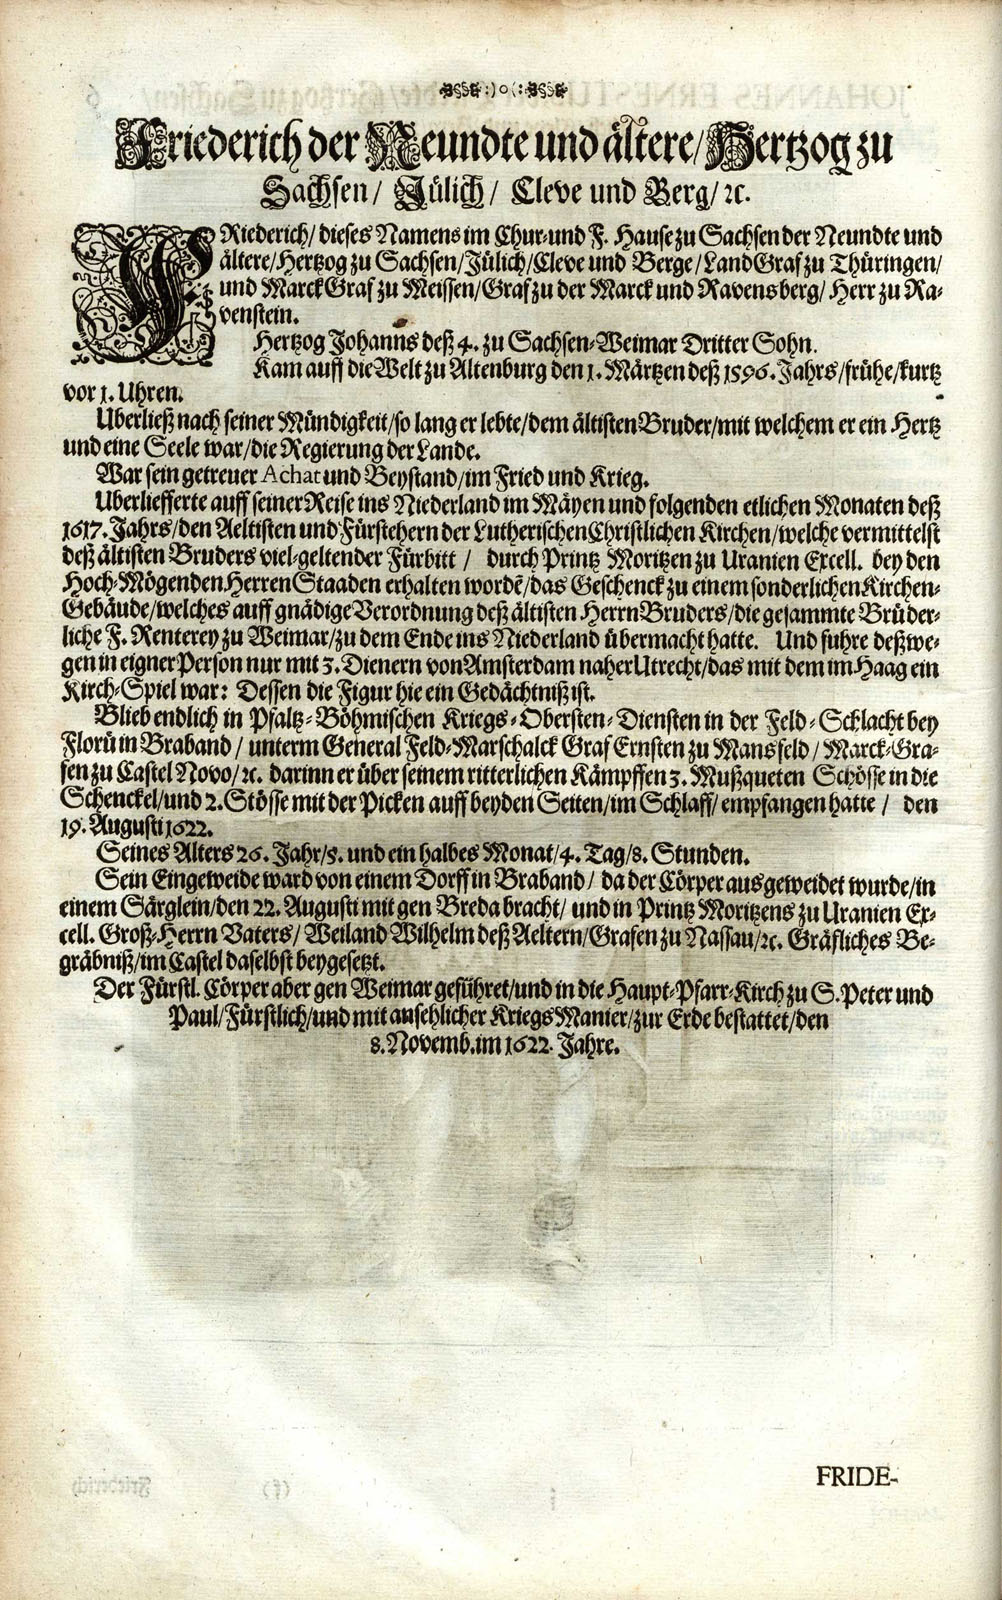 Friederich der Neundte und ältere/ Hertzog zu
Sachsen/ Jülich/ Cleve und Berg/ ꝛc.
FRiederich/ dieses Namens im Chur-und F. Hause zu Sachsen der Neundte und
ältere/ Hertzog zu Sachsen/ Jülich/ Cleve und Berge/ LandGraf zu Thüringen/
und MarckGraf zu Meissen/ Graf zu der Marck und Ravensberg/ Herr zu Ra-
venstein.
Hertzog Johanns deß 4. zu Sachsen-Weimar Dritter Sohn.
Kam auff die Welt zu Altenburg den 1. Märtzen deß 1596. Jahrs/ frühe/ kurtz
vor 1. Uhren.
Uberließ nach seiner Mündigkeit/ so lang er lebte/ dem ältisten Bruder/ mit welchem er ein Hertz
und eine Seele war/ die Regierung der Lande.
War sein getreuer Achat und Beystand/ im Fried und Krieg.
Uberliefferte auff seiner Reise ins Niederland im Mäyen und folgenden etlichen Monaten deß
1617. Jahrs/ den Aeltisten und Fürstehern der Lutherischen Christlichen Kirchen/ welche vermittelst
deß ältisten Bruders viel-geltender Fürbitt/ durch Printz Moritzen zu Uranien Excell. bey den
Hoch-Mögenden Herren Staaden erhalten wordē/ das Geschenck zu einem sonderlichen Kirchen-
Gebäude/ welches auff gnädige Verordnung deß ältisten Herrn Bruders/ die gesammte Brüder-
liche F. Renterey zu Weimar/ zu dem Ende ins Niederland übermacht hatte. Und fuhre deßwe-
gen in eigner Person nur mit 3. Dienern von Amsterdam naher Utrecht/ das mit dem im Haag ein
Kirch-Spiel war: Dessen die Figur hie ein Gedächtniß ist.
Blieb endlich in Pfaltz-Böhmischen Kriegs-Obersten-Diensten in der Feld-Schlacht bey
Florü in Braband/ unterm General Feld-Marschalck Graf Ernsten zu Mansfeld/ Marck-Gra-
fen zu Castel Novo/ ꝛc. darinn er über seinem ritterlichen Kämpffen 3. Mußqueten Schösse in die
Schenckel/ und 2. Stösse mit der Picken auff beyden Seiten/ im Schlaff/ empfangen hatte/ den
19. Augusti 1622.
Seines Alters 26. Jahr/ 5. und ein halbes Monat/ 4. Tag/ 8. Stunden.
Sein Eingeweide ward von einem Dorff in Braband/ da der Cörper ausgeweidet wurde/ in
einem Särglein/ den 22. Augusti mit gen Breda bracht/ und in Printz Moritzens zu Uranien Ex-
cell. Groß-Herrn Vaters/ Weiland Wilhelm deß Aeltern/ Grafen zu Nassau/ ꝛc. Gräfliches Be-
gräbniß/ im Castel daselbst beygesetzt.
Der Fürstl. Cörper aber gen Weimar geführet/ und in die Haupt-Pfarr-Kirch zu S. Peter und
Paul/ Fürstlich/ und mit ansehlicher Kriegs Manier/ zur Erde bestattet/ den
8. Novemb. im 1622. Jahre.
FRIDE-